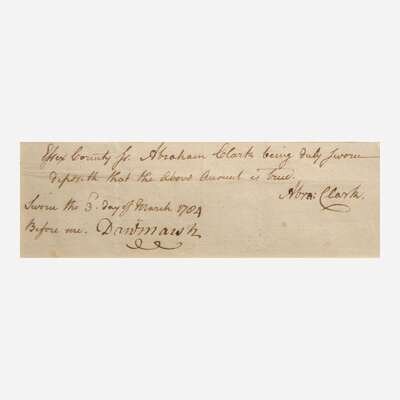 Essex County Ss. Abraham Clark being duly sworn
deposeth that the above Account is true.
Abra: Clark.
Sworn the 3d. day of March 1784
Before me. Danl. Marsh